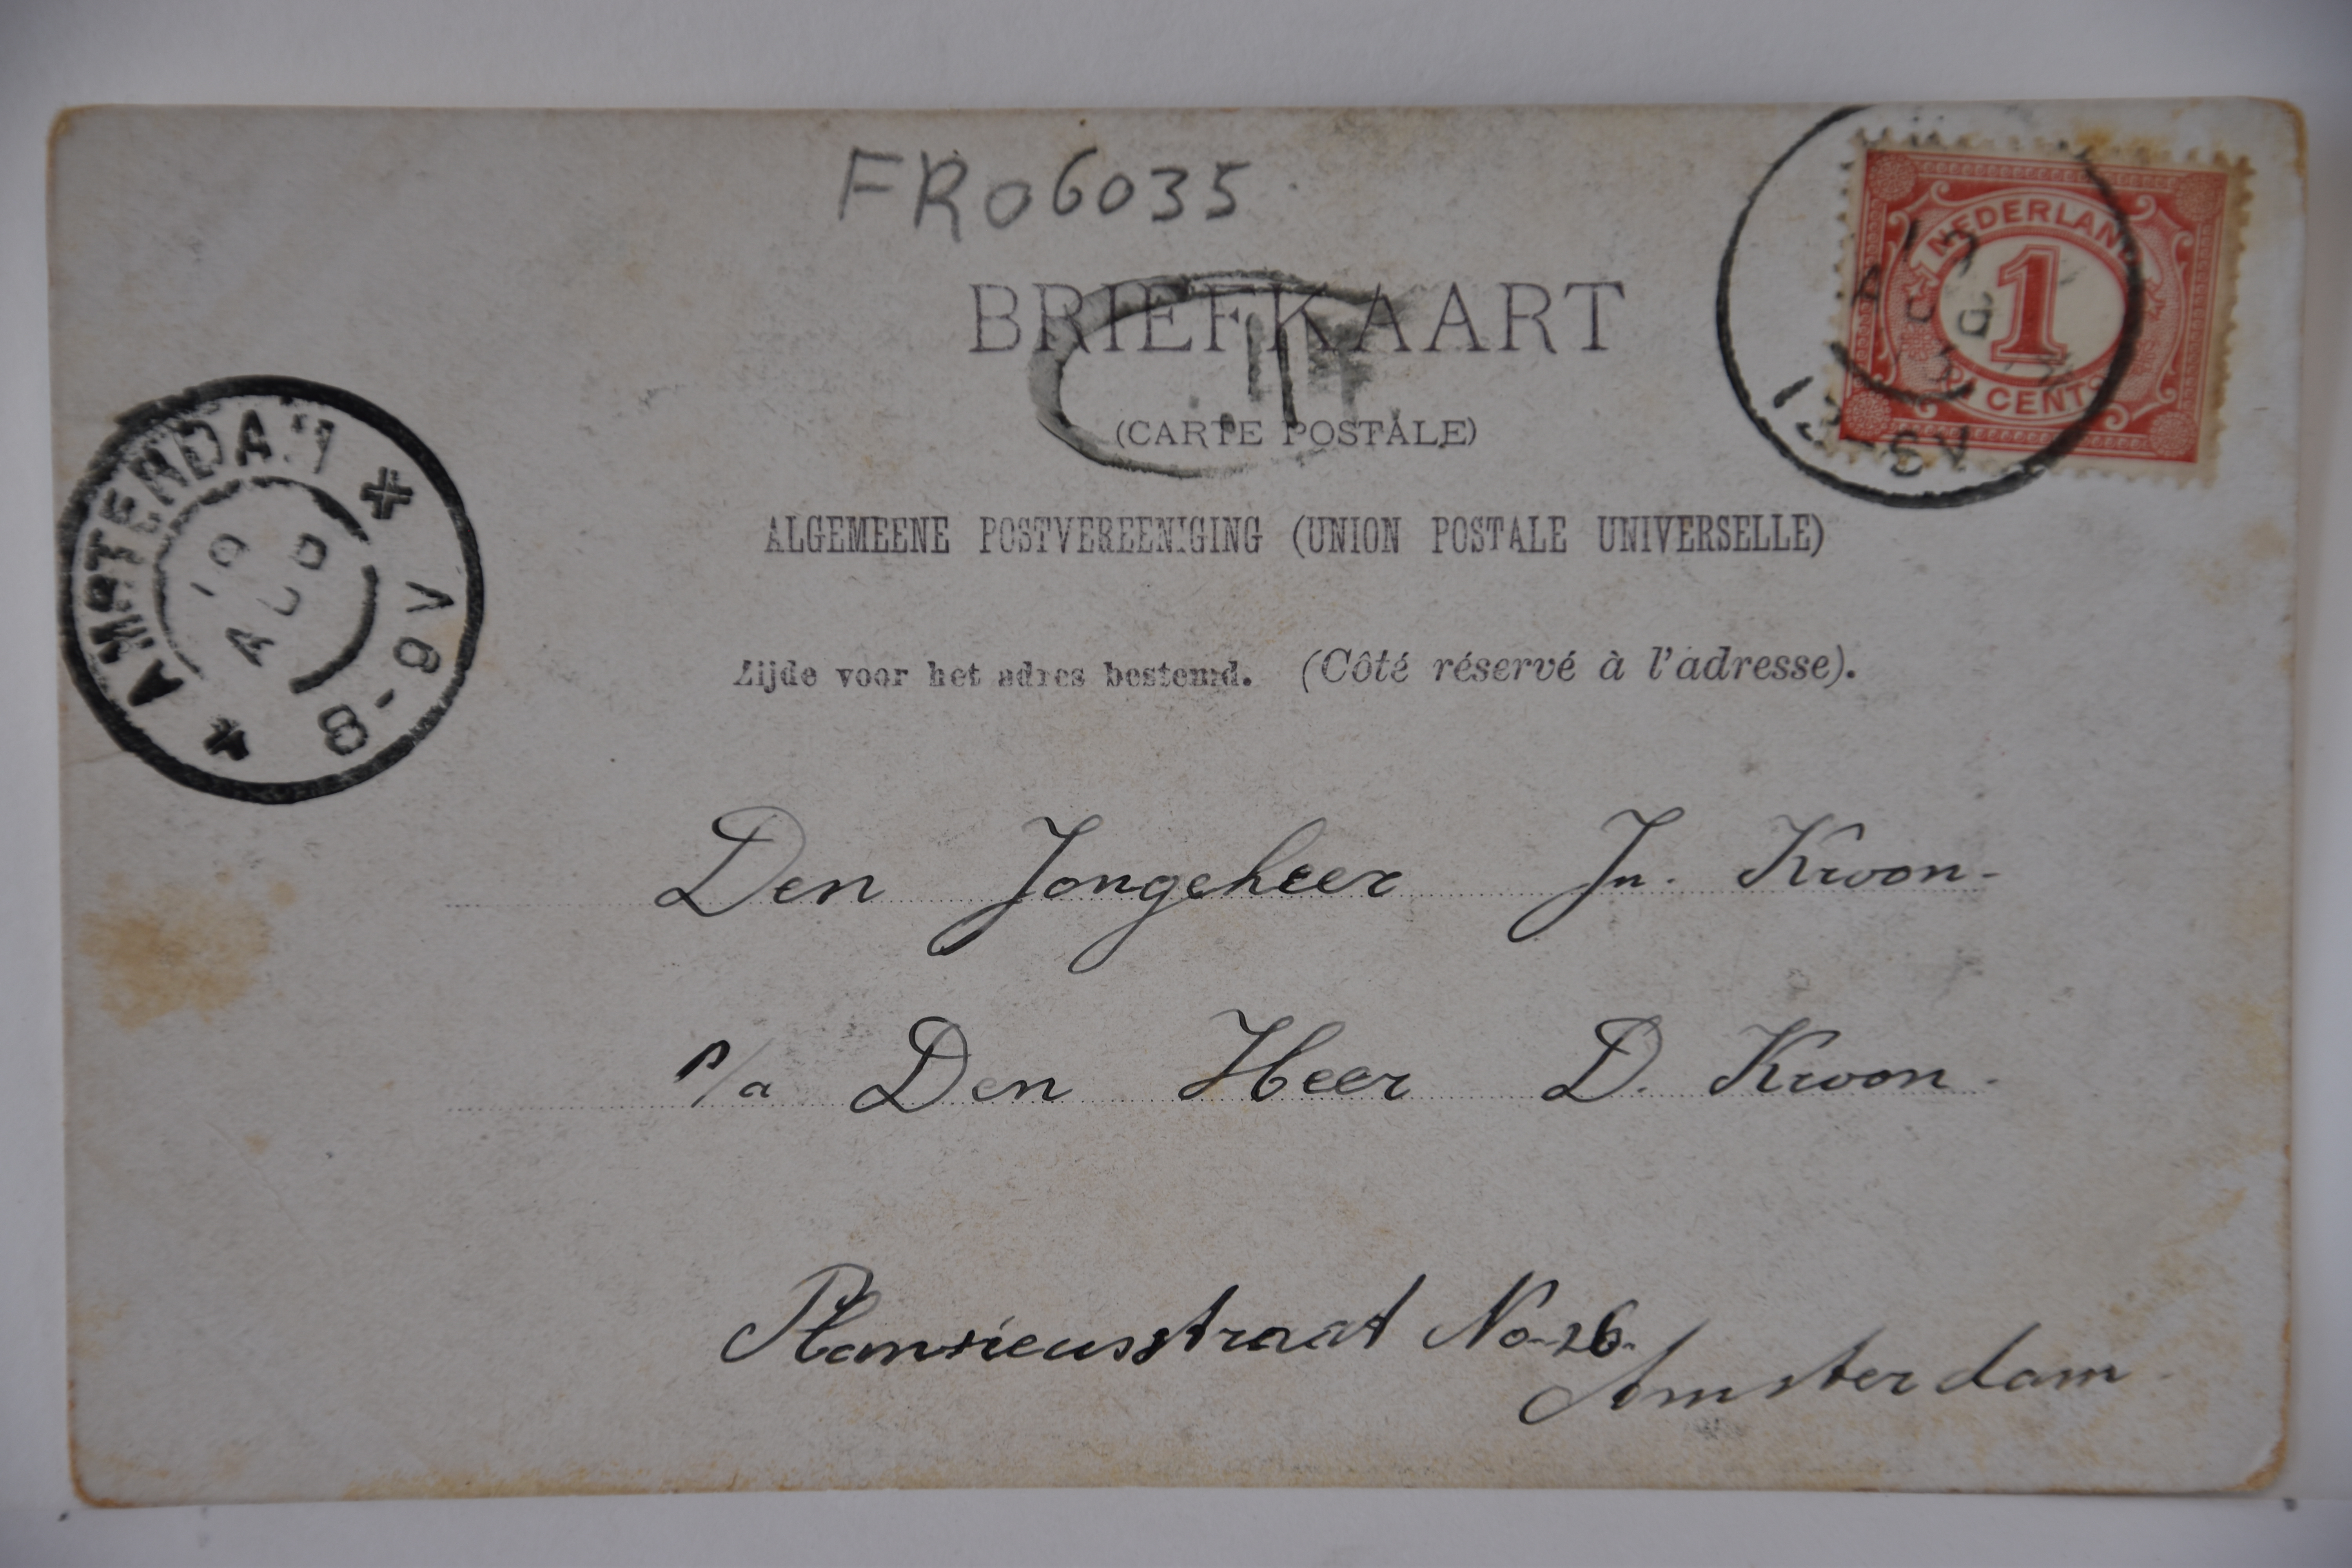 FR06035
BRIEFKAART
(CARTE POSTALE)
ALGEMEENE POSTVEREENIGING (UNION POSTALE UNIVERSELLE)
Zijde voor het adres bestemd. (Côté réservé à l'adresse).
NEDERLAND
1
CENT
AMSTERDAM
10 AUG
8-9V
Den Jongeheer Jn. Kroon-
P/a Den Heer D. Kroon.
No 26.
Amsterdam